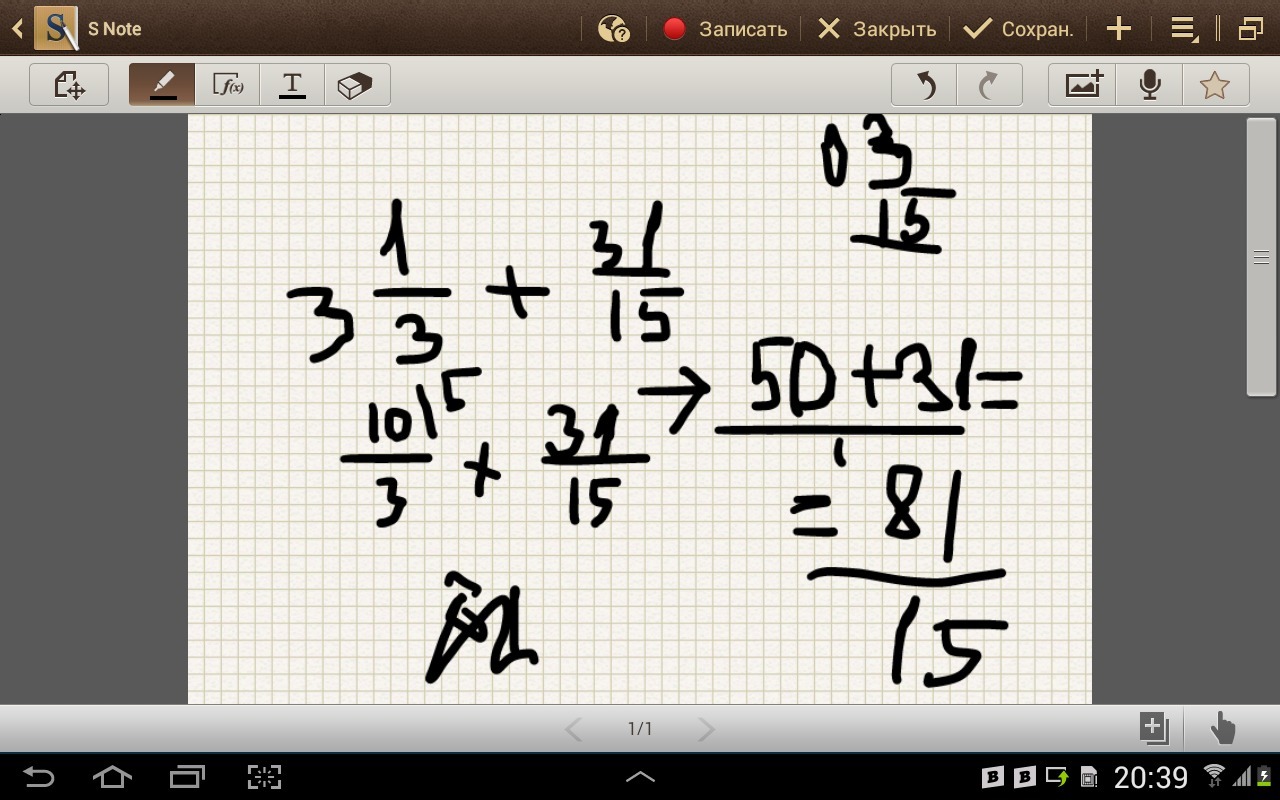 S Note
Записать
Закрыть
Сохран.
f(x)
T
0 3/15
3 1/3 + 31/15
10\5/3 + 31/15 → 50+31=
= 81/15
1/1
20:39